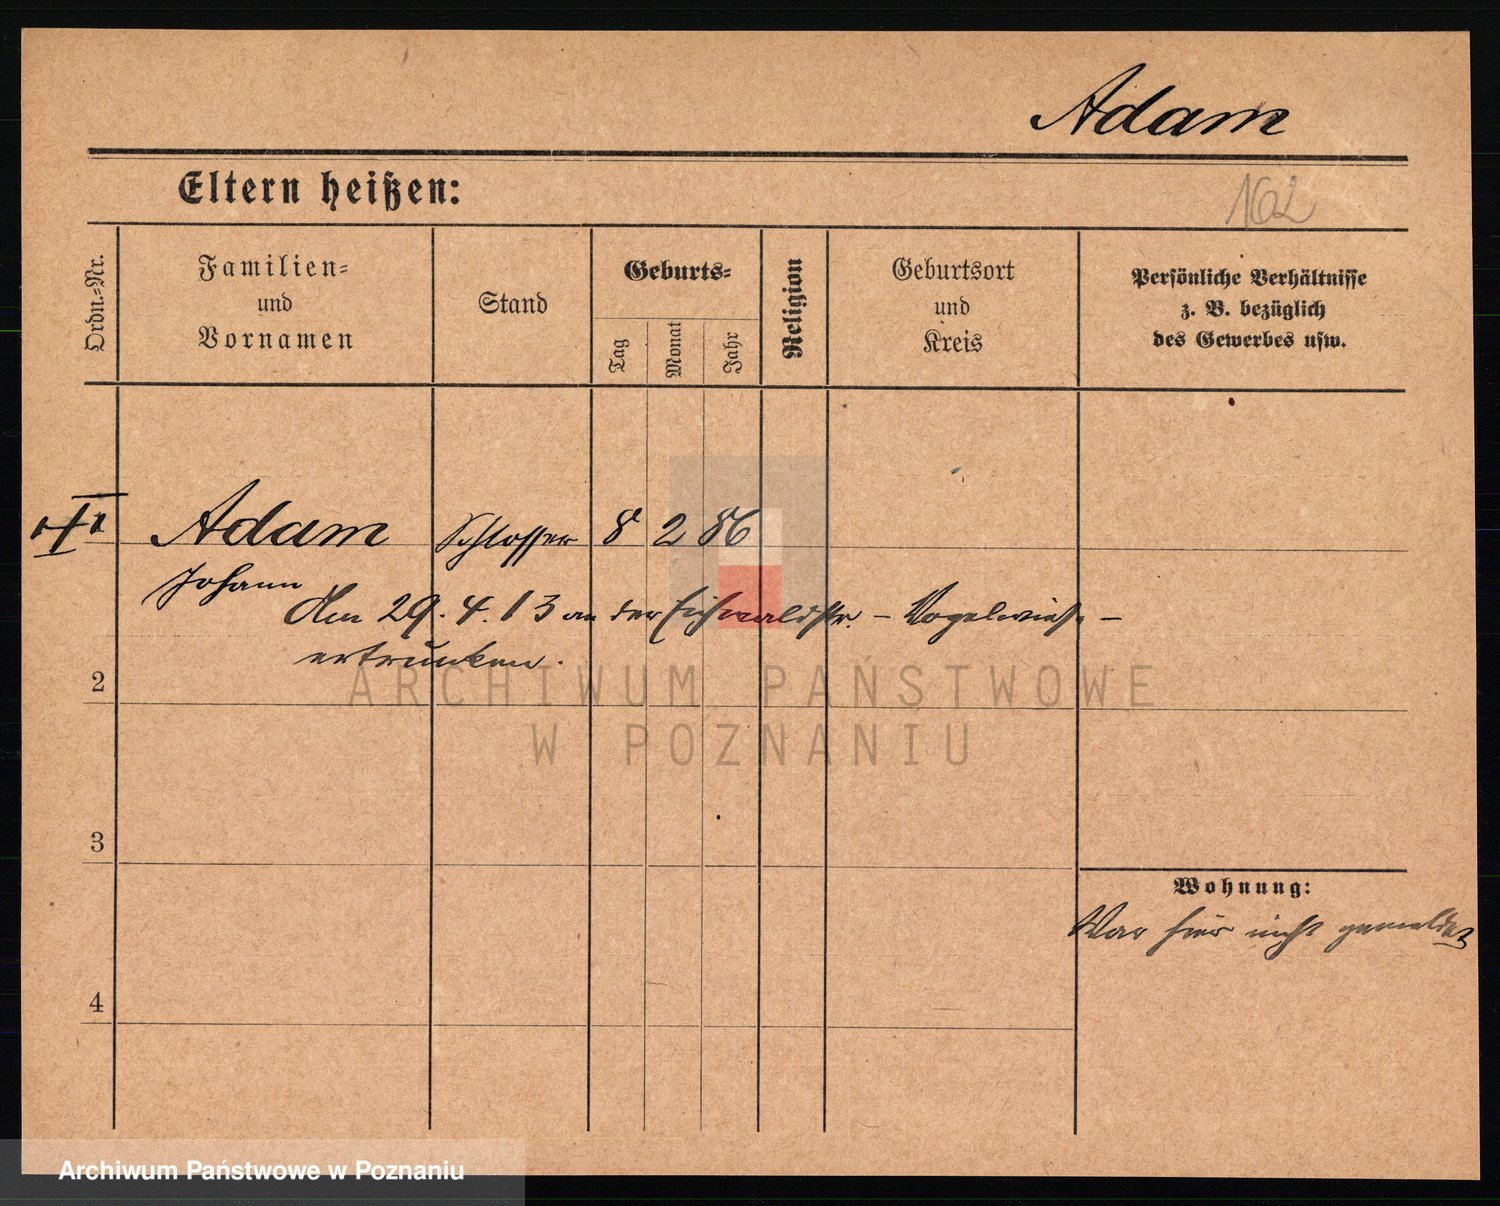 Adam
Eltern heißen:
162
Ordn.-Nr.
Familien-
und
Vornamen
Stand
Geburts-
Tag
Monat
Jahr
Religion
Geburtsort
und
Kreis
Persönliche Verhältnisse
z. B. bezüglich
des Gewerbes usw.
Adam Schlosser 8 2 86
Johann
Am 29. 4. 13 an der Eichwaldstr. - Vogelwiese -
ertrunken.
2
3
4
Wohnung:
War hier nicht gemeldet
ARCHIWUM PAŃSTWOWE
W POZNANIU
Archiwum Państwowe w Poznaniu